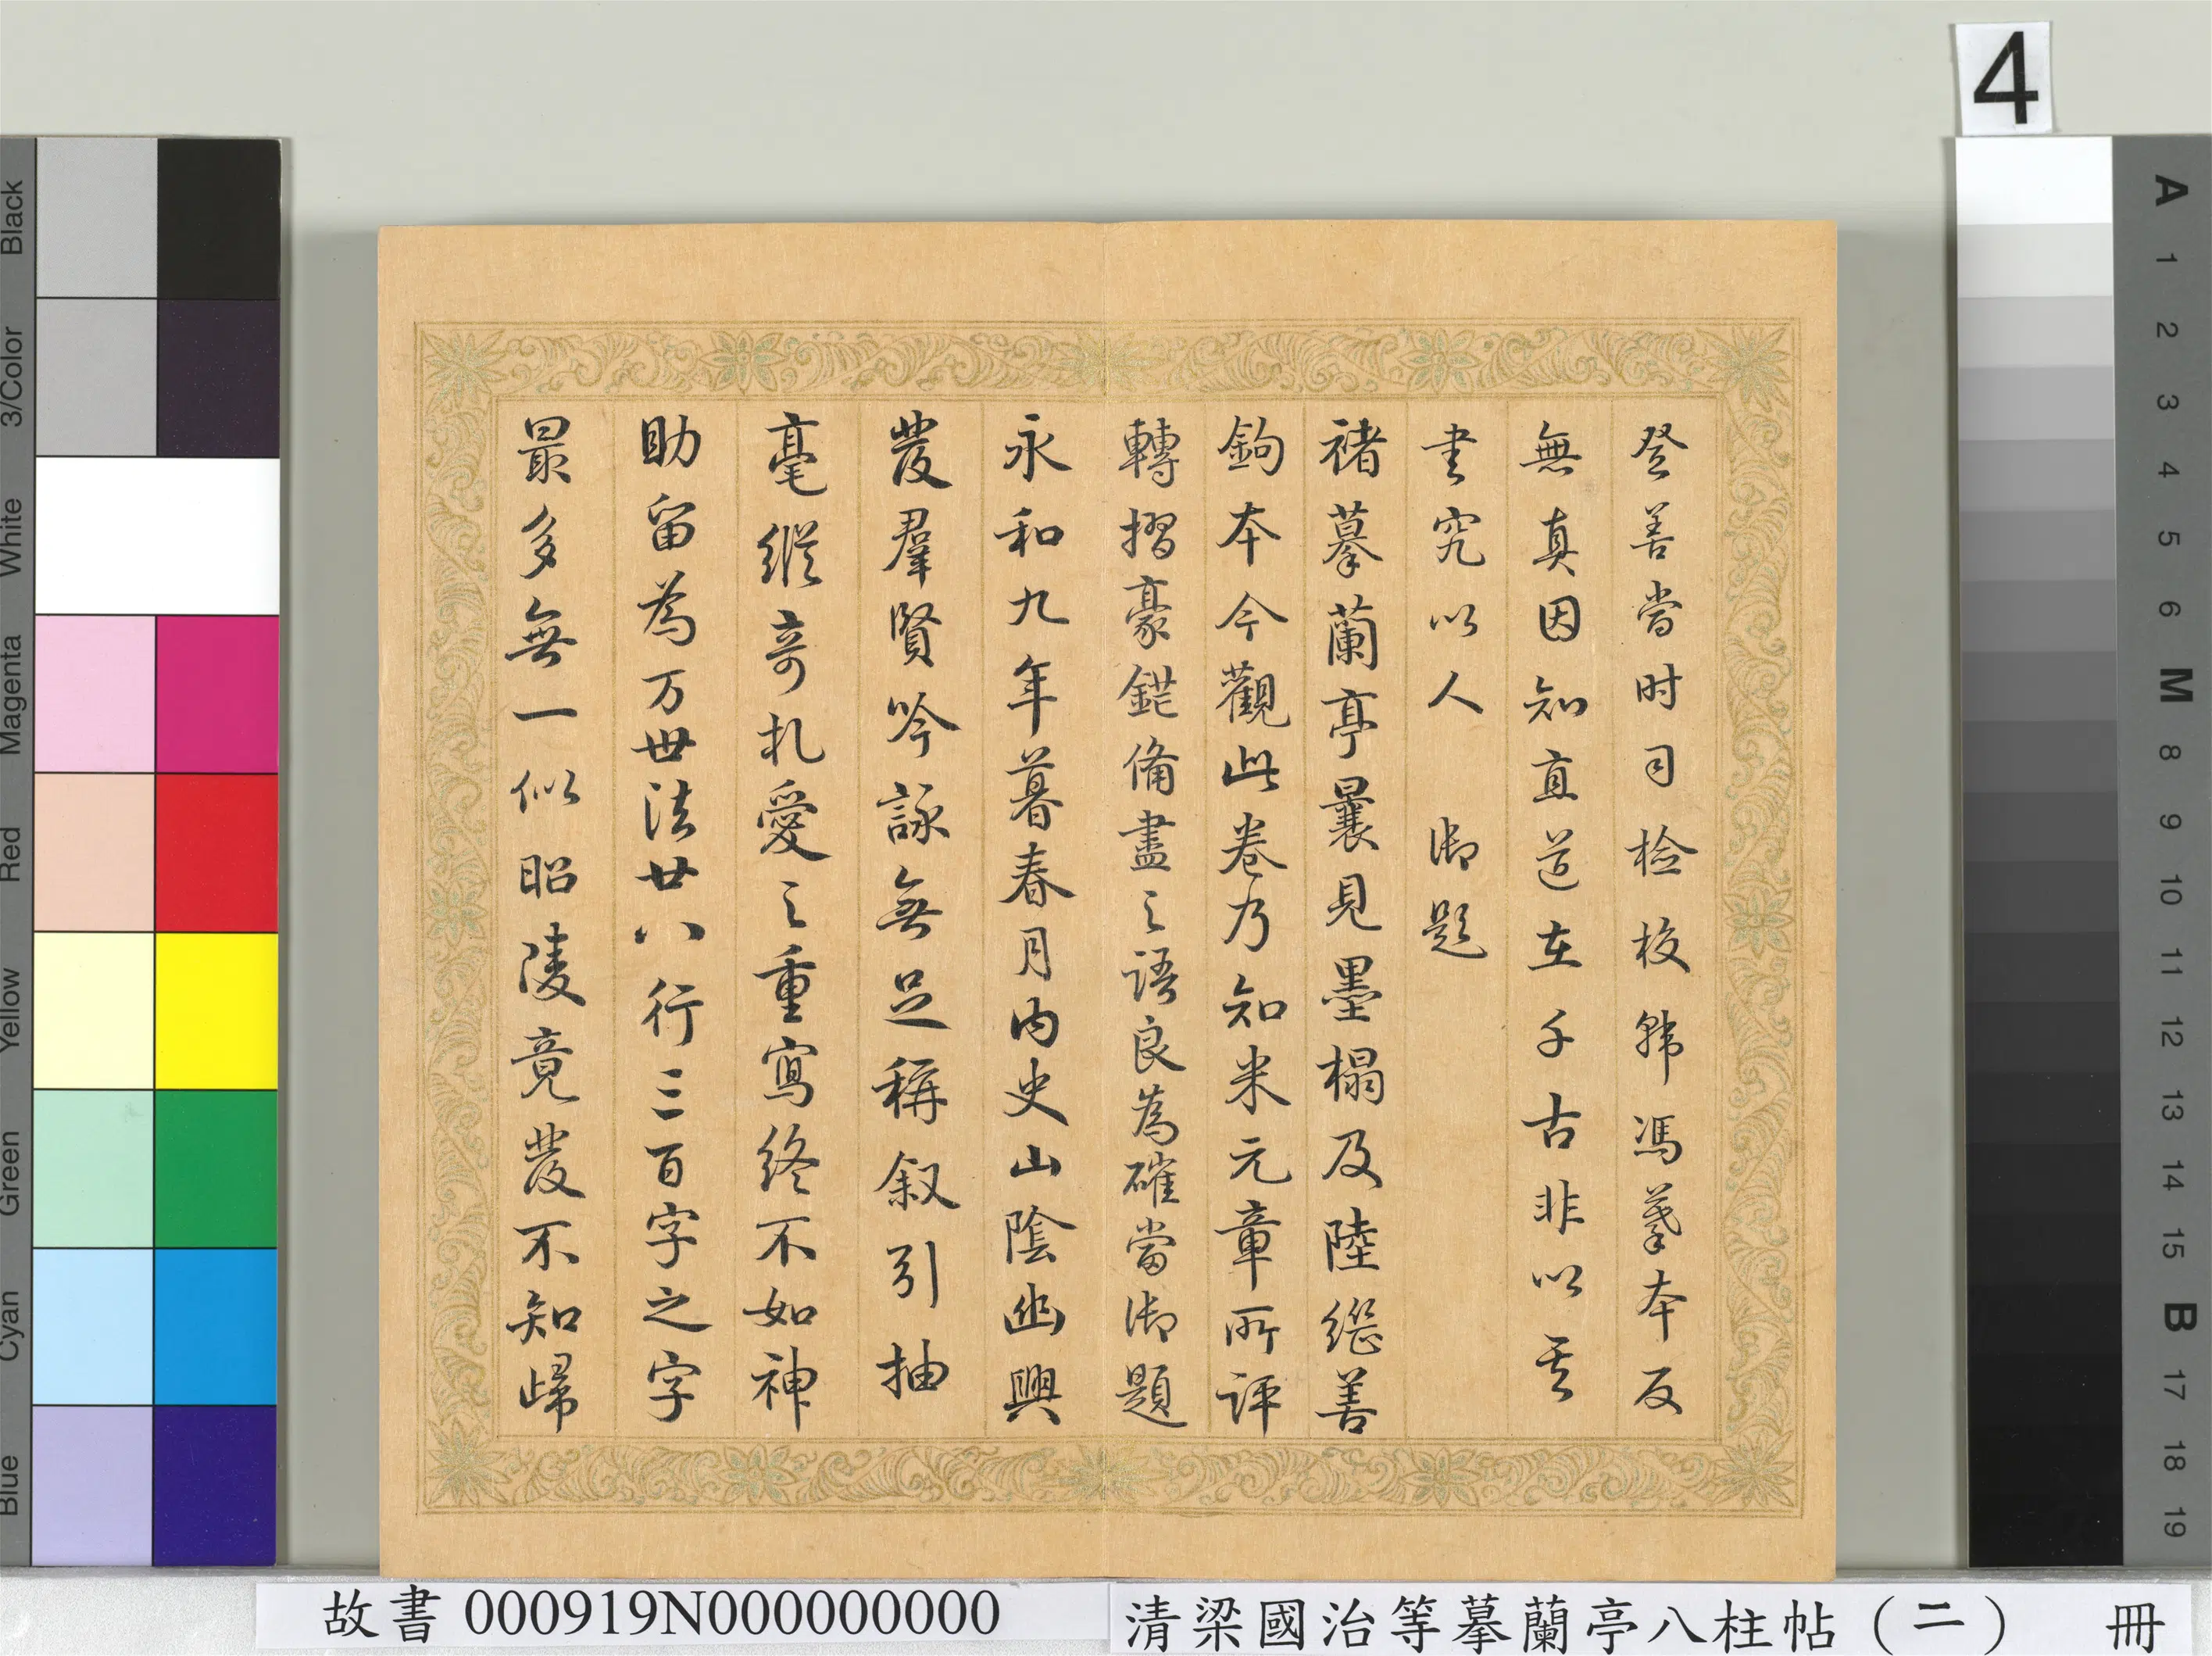 登善當时司檢校韩馮摹本反
無真因知直道在千古非以其
書究以人 御題
褚摹蘭亭曩見墨榻及陸繼善
鉤本今觀此卷乃知米元章所評
轉摺豪鋩備盡之語良為確當御題
永和九年暮春月內史山陰幽興
發羣賢吟詠無足稱叙引抽
毫縱奇札愛之重寫終不如神
助留為万世法廿八行三百字之字
最多無一似昭陵竟發不知歸
4
Black
3/Color
White
Magenta
Red
Yellow
Green
Cyan
Blue
A
1
2
3
4
5
6
M
8
9
10
11
12
13
14
15
B
17
18
19
故書 000919N000000000
清梁國治等摹蘭亭八柱帖（二） 冊